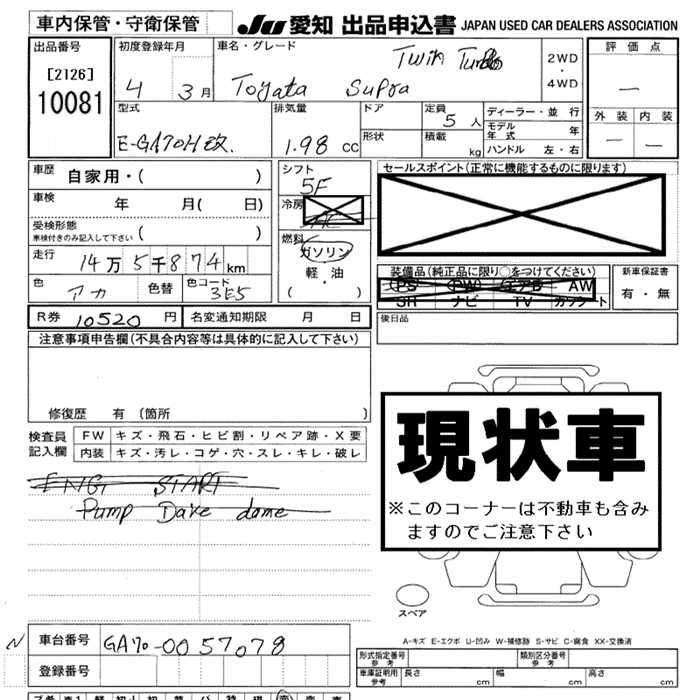 車内保管・守衛保管 JU 愛知 出品申込書 JAPAN USED CAR DEALERS ASSOCIATION
出品番号 初度登録年月 車名・グレード 評価点
[2126] 4 3月 Toyata Supra Twin Turbo 2WD・4WD —
10081 型式 排気量 ドア 定員 ディーラー・並行 外装 内装
E-GA70H改. 1.98 cc 形状 5人 積載 kg モデル年式 年 — —
ハンドル 左・右
車歴 自家用・( ) シフト 5F セールスポイント(正常に機能するものに限ります)
車検 年 月( 日) 冷房 AC
受検形態 車検付きのみ記入して下さい ( ) 燃料 ガソリン
走行 14万5千874km 軽・油 装備品(純正品に限り○をつけてください) 新車保証書
色 アカ 色替 色コード 3E5 ・( ) PS PW エアB AW 有・無
SR ナビ TV カワシート
R券 10520円 名変通知期限 月 日 後日品
注意事項申告欄(不具合内容等は具体的に記入して下さい)
修復歴 有 (箇所 )
検査員記入欄 FW キズ・飛石・ヒビ割・リペア跡・X要
内装 キズ・汚レ・コゲ・穴・スレ・キレ・破レ
ENGI START
Pump Dave dome
現状車
※このコーナーは不動車も含み
ますのでご注意下さい
スペア
A-キズ E-エクボ U-凹み W-補修跡 S-サビ C-腐食 XX-交換済
N 車台番号 GA70-0057078
登録番号
形式指定番号 参考 類別区分番号 参考
車庫証明用 参考 長さ cm 幅 cm 高さ cm